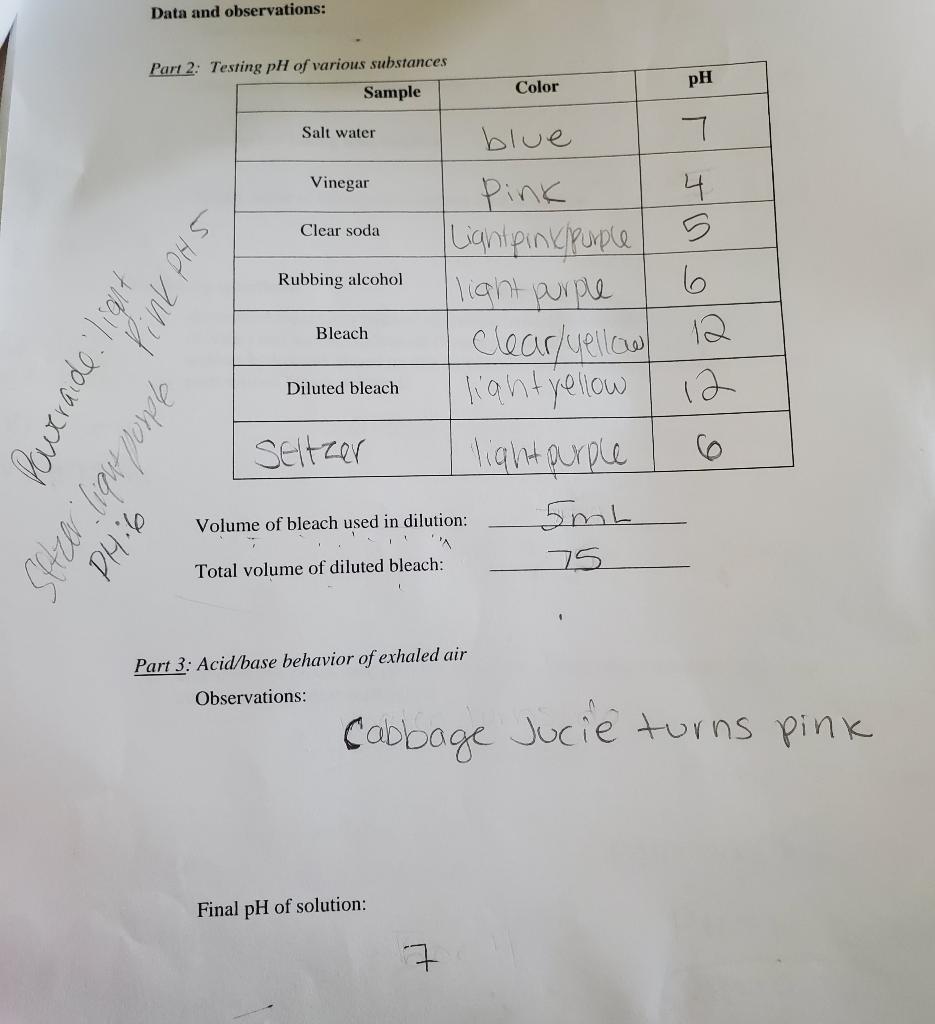 Data and observations:
Part 2: Testing pH of various substances
Sample Color pH
Salt water blue 7
Vinegar Pink 4
Clear soda Lightpink/purple 5
Rubbing alcohol light purple 6
Bleach Clear/yellow 12
Diluted bleach light yellow 12
Seltzer light purple 6
Poweraide: light
Pink PH 5
Seltzer: light purple
PH: 6
Volume of bleach used in dilution: 5mL
Total volume of diluted bleach: 75
Part 3: Acid/base behavior of exhaled air
Observations:
Cabbage Jucie turns pink
Final pH of solution:
7